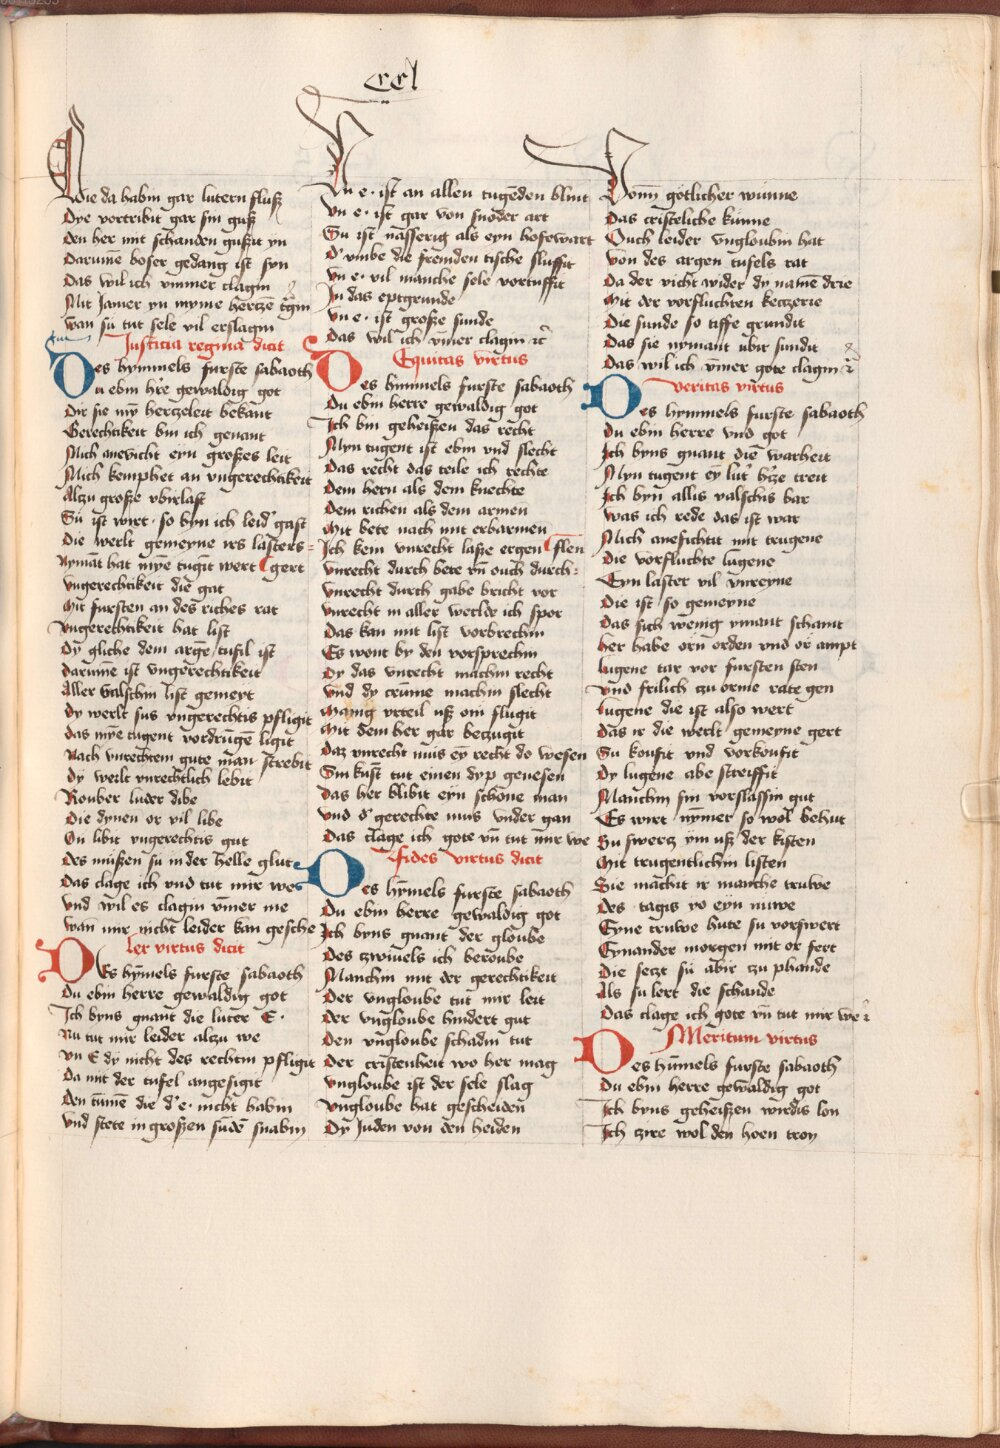 ccl
Die da habin gar lutern fluß
Dye vortribit gar sin guß
Den her mit schanden gußit yn
Darume boser gedang ist syn
Das wil ich ummer clagin
Mit Jamer yn myme hertzē tgin
wan sü tut sele vil erslagin
Justicia regina dicit
Des hymmels furste sabaoth
Du ebin hre gewaldig got
Dir sie my hertzeleit bekant
Gerechtikeit bin ich genant
Mich anevicht eyn großes leit
Mich kemphet an ungerechtikeit
Alzu große ubirlast
Sü ist wirt · so byn ich leid' gast
Die werlt gemeyne irs lasters gert
Nymāt hat mye tugīt wert
ungerechtikeit die gat
Mit fursten an des riches rat
ungerechtikeit hat list
Dy gliche dem arge tufil ist
darume ist ungerechtikeit
Aller valschin list gemeyt
dy werlt sus ungerechtis pfligit
das mye tugent vordruge ligit
Nach unrechtem gute man strebit
dy werlt unrechtlich lebit
Rouber luder dibe
Die dynen or vil libe
Ou libit ungerechtis gut
des mußen sü in der helle glut
Das clage ich und tut mir we
und wil es clagin ūmer me
wan mir nicht leider kan gesche
ler virtus dicit
Des hymels furste sabaoth
Du ebin herre gewaldig got
Ich byns gnant die luter E ·
Nu tut mir leider alzu we
un E dy nicht des rechtin pfligit
Da mit der tufel angesigit
Den tumē die d' e · nicht habin
und stete in großen sūdē snabin
Un e · ist an allen tugēden blint
Un e · ist gar von snoder art
Sü ist nasserig als eyn hofewart
D' umbe die fremden tische sluffit
Un e · vil manche sele vortuffit
In das eptgrunde
Un e · ist große sunde
Das wil ich ūmer clagin ꝛc
Equitas virtus
Des himmels furste sabaoth
Du ebin herre gewaldig got
Ich bin geheißen das recht
Myn tugent ist ebin und slecht
Das recht das teile ich rechte
Dem hern als dem knechte
Dem richen als dem armen
Mit bete nach mit erbarmen
Ich kein unrecht laße ergen
unrecht durch bete vn ouch durch flen
unrecht durch gabe bricht vor
unrecht in aller werlde ich spor
Das kan mit list vorbrechin
Es wont by den vorsprechin
Dy das unrecht machin recht
Und dy crume machin slecht
Manig urteil uß om flugit
Mit dem her gar bezugit
Daz unrecht mus ey recht do wesen
Sin kust tut einen dyp genesen
das her blibit eyn schone man
und d' gerechte mus under gan
Das clage ich gote vn tut mir we
Fides virtus dicit
Des hymels furste sabaoth
Du ebin herre gewaldig got
Ich byns gnant der gloube
Des zwivels ich beroube
Manchin mit der gerechtikeit
Der ungloube tut mir leit
Der ungloube hindert gut
Den ungloube schadin tut
Der cristenheit wo her mag
Ungloube ist der sele slag
Ungloube hat gescheiden
Dy Juden von den heiden
Vonn gotlicher wunne
Das cristeliche kunne
Ouch leider ungloubin hat
Von des argen tufels rat
Da der vicht wider dy name drie
Mit der vorfluchten ketzerie
Die sunde so tiffe grundit
Das sie nymant ubir sundit
Das wil ich ūmer gote clagin ꝛc
Veritas virtus
Des hymmels furste sabaoth
Du ebin herre und got
Ich byns gnant die warheit
Myn tugent ey lut' h'ze treit
Ich byn allis valschis bar
Was ich rede das ist war
Mich anefichtit mit trugene
Die vorfluchte lugene
Eyn laster vil unreyne
Die ist so gemeyne
Das sich wenig ymant schamt
her habe orn orden und or ampt
lugene tar vor fursten sten
Und frilich zu orme rate gen
lugene die ist also wert
Das ir die werlt gemeyne gert
Su koufit und vorkoufit
Dy lugene abe streiffit
Manchin sin vorslassin gut
Es wirt nymer so wol behut
Su swerz ym uß der kisten
Mit trugentlichin listen
Sie machit ir manche truwe
Des tagis yo eyn nuwe
Eyne truwe hute su vorswert
Eynander morgen mit or fert
Die setzt sü abir zu phande
Als su lert die schande
Das clage ich gote vn tut mir we
Meritum virtus
Des humels furste sabaoth
Du ebin herre gewaldig got
Ich byns geheißen wirdis lon
Ich zire wol den hoen tron